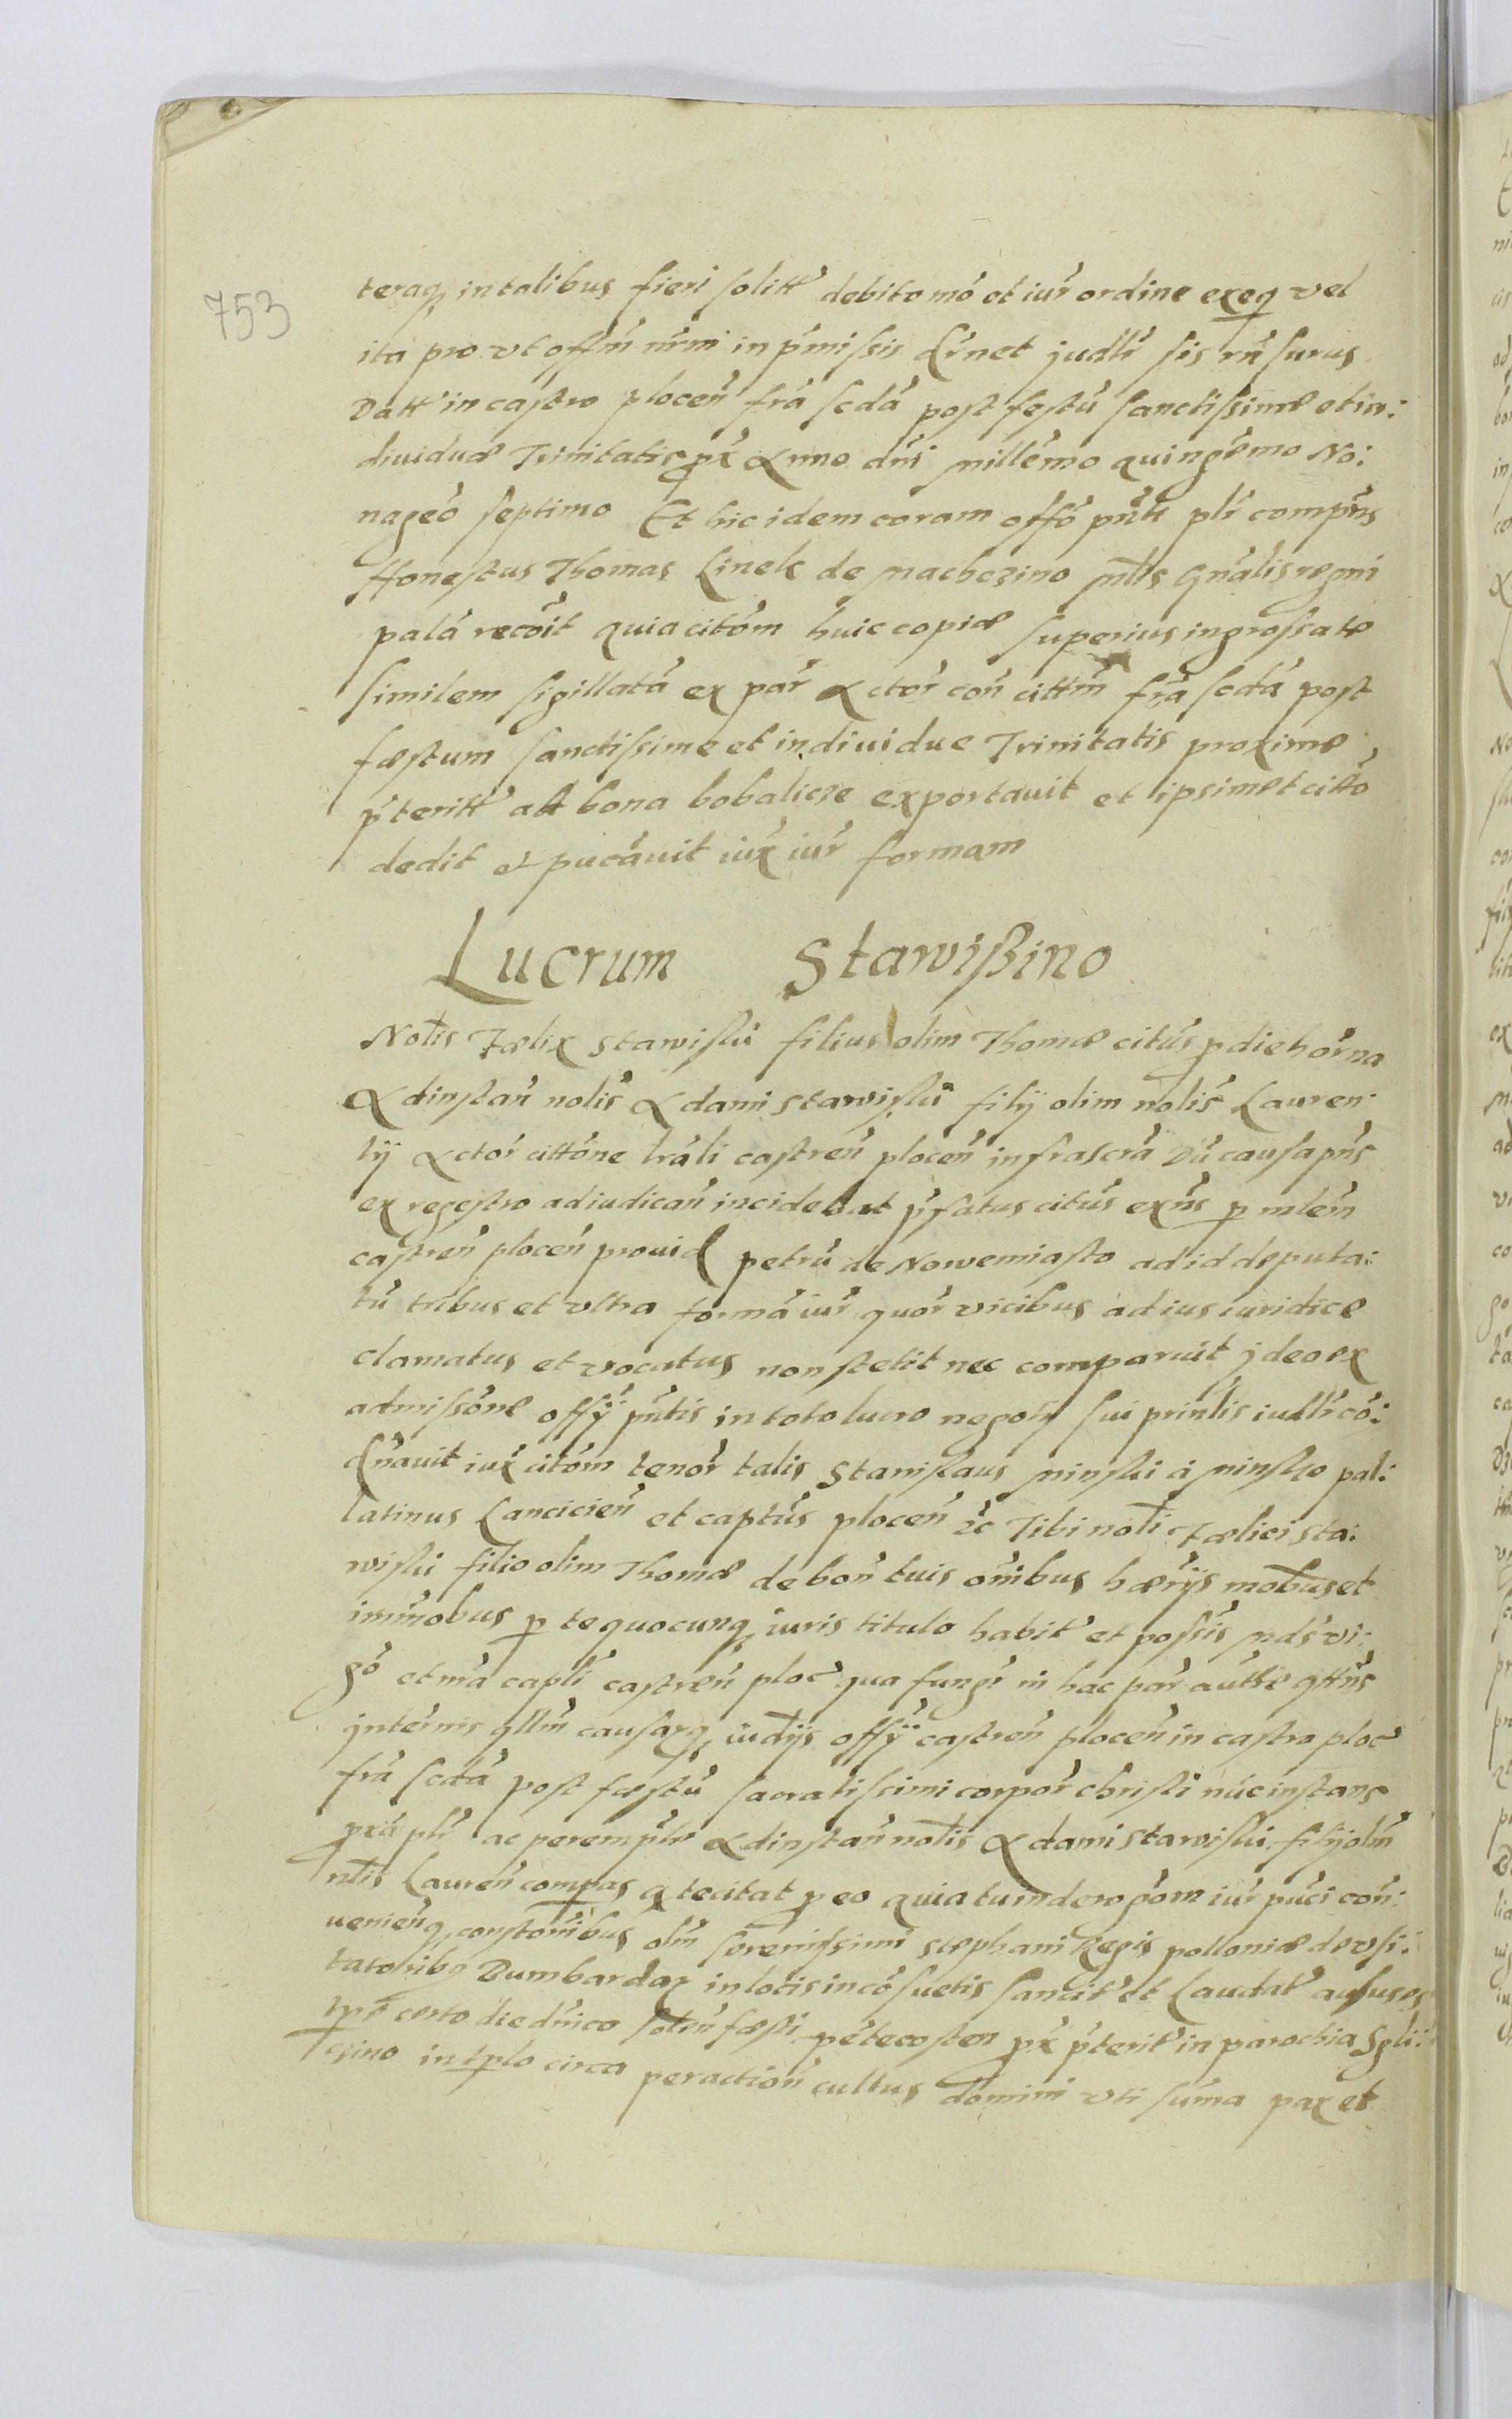 753
teraq₃ in talibus fieri solitt' debito mō et iur̄ ordine exeq vel
ita pro vt offm̄ nr̄m in p̄missis dr̄net judlr̄ sis rn̄surus.
Datt' in castro plocen̄ fr̄a scdā post festū sanctissimæ et in:
diuiduæ Trinitatis px̄ Anno dn̄i millēmo quingēmo No:
nageō septimo Et hic idem coram offō pn̄ti plr̄ compn̄s
Honestus Thomas Linek de machczino mls̄ Gn̄alis regni
palā recōit quia citōm huic copiæ superius ingrossatæ
similem sigillatā ex par̄ Actor̄ con̄ cittm̄ fr̄a scdā post
fæstum sanctissime et indiuidue Trinitatis proximæ
p̄teritt' ad bona bobalicze exportauit et ipsimet cittō
dedit et pucāuit iux̄ iur̄ formam
Lucrum Stawißino
Nolis̄ Fælix Stawisku filius olim Thomæ citūs p die hōrna
Adinstan̄ nolis̄ Adami Stawiskū filij olim nolis̄ Lauren:
tij Actor̄ cittōne lrāli castren̄ plocen̄ infrascrā Dū causa pn̄s
ex regestro adiudican̄ incidebat p̄fatus citūs exn̄s p mlēm
castren̄ plocen̄ prouid petrū de Nowemiasto ad id deputa:
tū tribus et vltra formā iur̄ quōr vicibus ad ius iuridicæ
clamatus et vocatus non stetit nec comparuit jdeo ex
admissōnæ offij pn̄tis in toto lucro negotij sui prinlis̄ iudlr̄ cō:
dn̄auit iux̄ citōm tenōr talis Stanislaus minski à minsko pal:
latinus Lancicien̄ et captūs plocen̄ zc̄ Tibi noli̅ Fælici Sta:
wisku filio olim Thomæ de bon̄ tuis om̄ibus hærijs mob̄us et
immobus p te quocunq₃ iuris titulo habit' et possis mds̄ vi:
gō et mā capli̅ castren̄ ploc̄ qua fungr̄ in hac par̄ autte qttn̄s
jntērmis causarq₃ iudijs offij castren̄ plocen̄ in castro ploc̄
fr̄a scdā post fæstū sacratissimi corpor̄ christi nūc instans
pxā plr̄ ac peremptr̄ Adinstan̄ nolis̄ Adami Stawisku filij olm̄
nlis̄ Lauren̄ compās q te citat p eo quia tu inderogōm iur̄ pūci con̄:
uenienq₃ constōnibus olm̄ serenissimi Stephani Regis polloniæ de vsi:
tatoribus Bumbardaz in locis incōsuetis sancit' et Laudat' ausus es
tpē certo die dn̄ico solen̄ fæsti pētecosten px̄ p̄terit' in parochia Sgli:
czino in tplo circa peraction̄ cultus domini vti sum̄a pax et